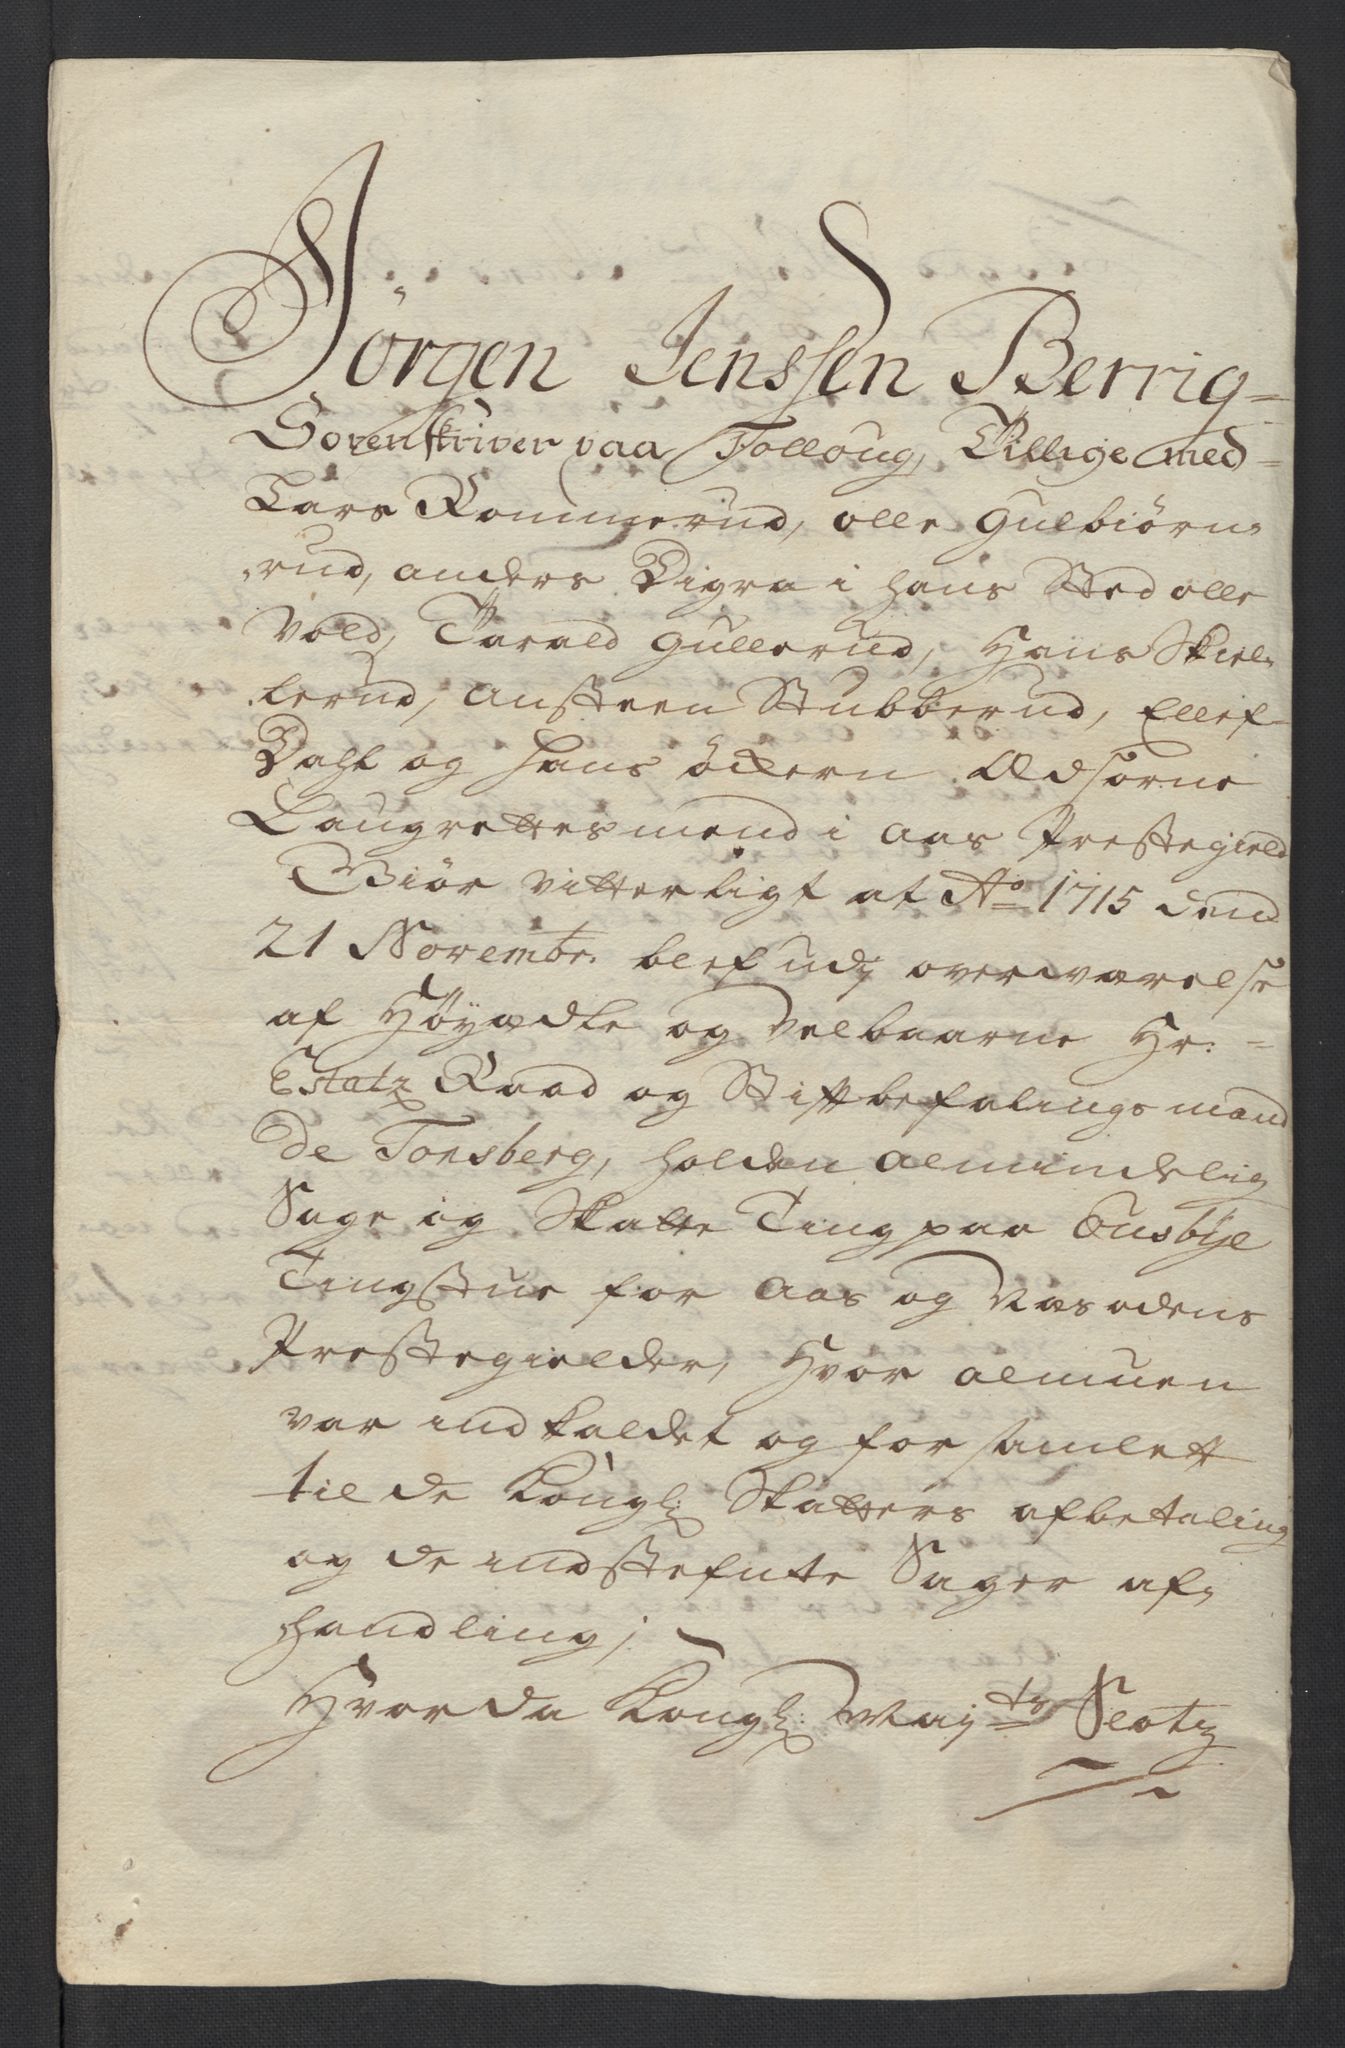 Jörgen Jenssen Berrig=
Sorenskriver paa Folloug, Tillige med=
Lars Rommerud, olle Gulbiörn,
,rud, anders Digra i hans Sted olle
Vold, Tarald Gullerud, Hans Skiel,
lerud, Austeen Stubberud, Ellef
Dahl og Hans öckern Edsorne
Laugrettesmend i Aas Prestegield
Giör vitterligt at Ao 1715 dend
21 Novembr. blef udj overværelse
af Höyædle og Velbaarne Hr: =
Estatz Raad og Stiftbefalingsmand
De Tonsberg, holden almindelig
Sage og Skatte Ting paa Eusbÿe
Tingstue for Aas og Næsodens
Prestegielder, Hvor almuen
var indkaldet og forsamlett
til de Kongl: Skatters afbetaling
og de indstefnte Sager af,
handling;
Hvor da Kongl: Maijts